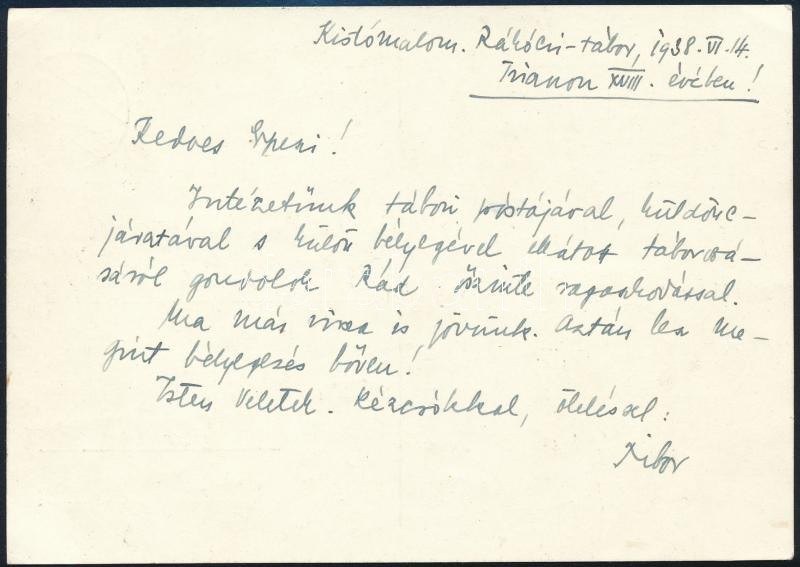 Kistómalom. Rákóczi-tábor, 1938. VI. 14.
Trianon XVIII. évében!
Kedves !
Intézetünk tábori postájával, küldönc-
járatával s külön bélyegével ellátott
gondolok Rád őszinte ragaszkodással.
Ma már vissza is jövünk. Aztán lesz me-
gint bélyegzés bőven!
Isten Veletek. Kézcsókkal, öleléssel:
Tibor